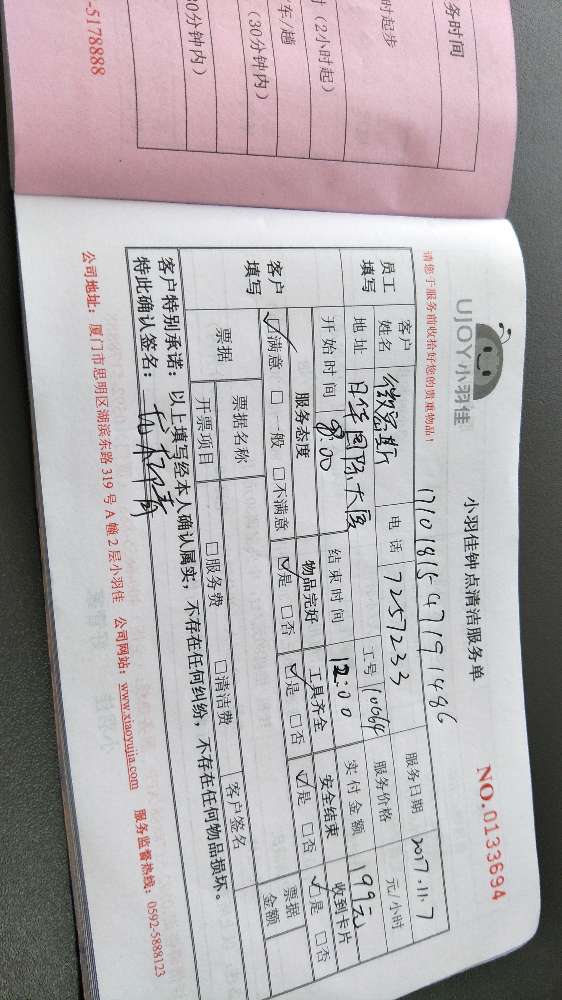 务时间
时起步
时（2小时起）
车/趟
（30分钟内）
30分钟内）
-5178888
UJOY小羽佳
小羽佳钟点清洁服务单
NO.0133694
请您于服务前收拾好您的贵重物品！
1710181547191486
服务日期 2017.11.7
员工填写
客户姓名 微容斯 电话 7257233 服务价格 元/小时
地址 日华国际大厦 工号 10064 实付金额 199元
开始时间 8:00 结束时间 12:00
客户填写
服务态度 物品完好 工具齐全 安全结束 收到卡片
☑满意 □一般 □不满意 ☑是 □否 ☑是 □否 ☑是 □否 ☑是 □否
票据 票据名称 □服务费 □清洁费 客户签名 票据金额
开票项目
客户特别承诺：以上填写经本人确认属实，不存在任何纠纷，不存在任何物品损坏。
特此确认签名：
公司地址：厦门市思明区湖滨东路319号A幢2层小羽佳 公司网站：www.xiaoyujia.com 服务监督热线：0592-5888123